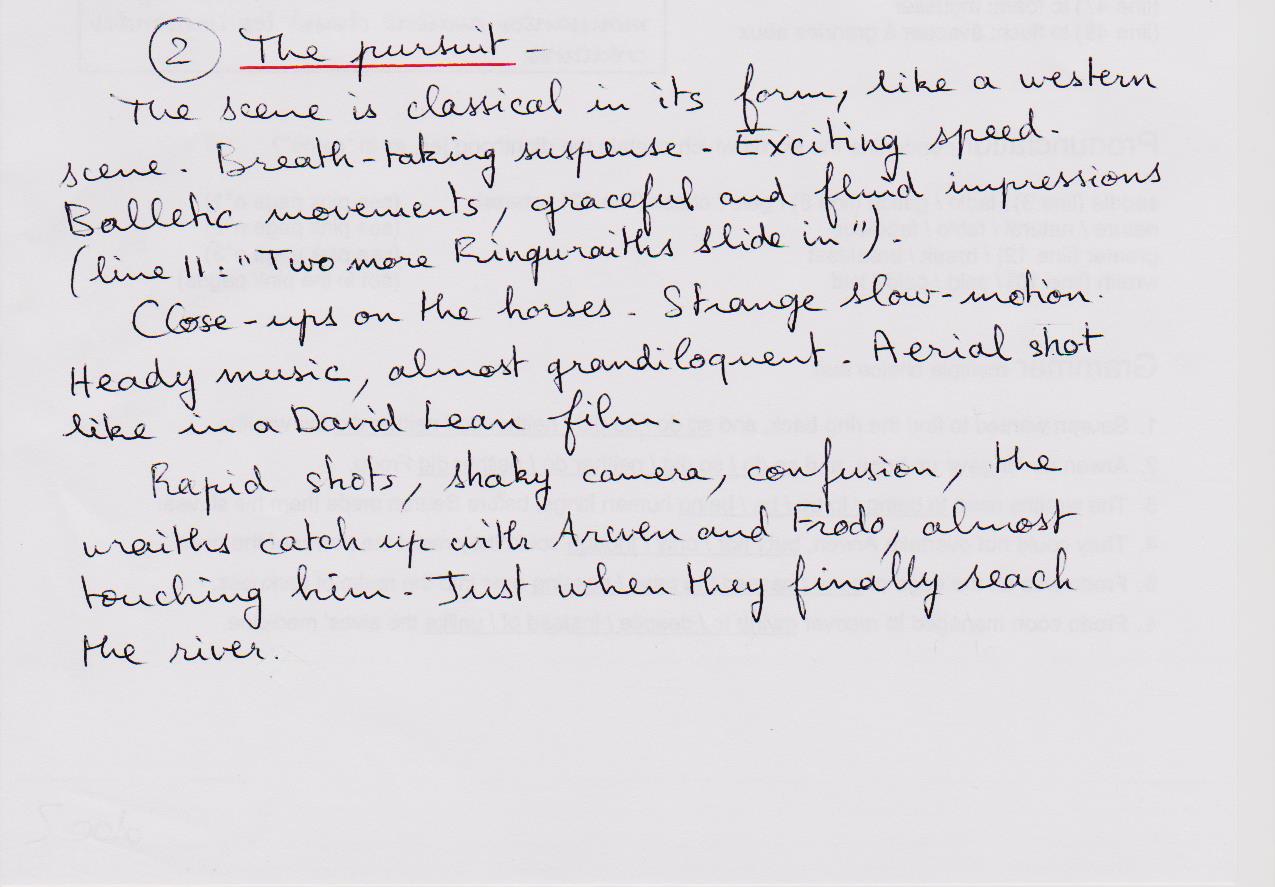 ② The pursuit -
The scene is classical in its form, like a western
scene. Breath-taking suspense - Exciting speed.
Balletic movements, graceful and fluid impressions
(line 11: "Two more Ringwraiths slide in").
Close-ups on the horses - Strange slow-motion.
Heady music, almost grandiloquent - Aerial shot
like in a David Lean film.
Rapid shots, shaky camera, confusion, the
wraiths catch up with Arwen and Frodo, almost
touching him - Just when they finally reach
the river.